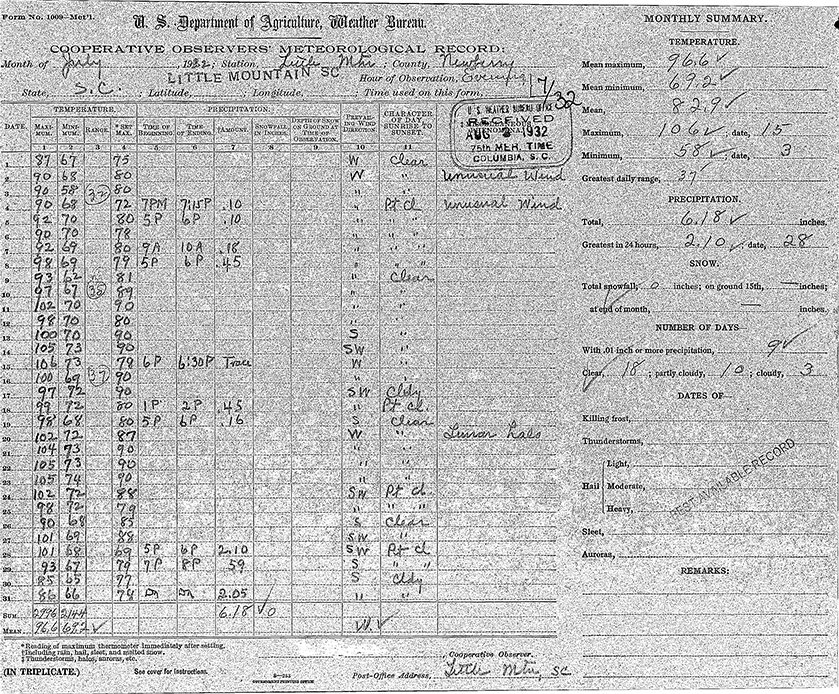 Form No. 1009—Met'l.
U. S. Department of Agriculture, Weather Bureau.
COOPERATIVE OBSERVERS' METEOROLOGICAL RECORD:
Month of July, 1932; Station, Little Mtn; County, Newberry
LITTLE MOUNTAIN SC
State, S.C.; Latitude,; Longitude,; Hour of Observation, Evening
Time used on this form,
7/32
U S WEATHER BUREAU OFFICE
RECEIVED
AUG 1932
75th MER. TIME
COLUMBIA, S. C.
DATE. TEMPERATURE. PRECIPITATION. PREVAILING WIND DIRECTION CHARACTER OF DAY, SUNRISE TO SUNSET.
MAXIMUM. MINIMUM. RANGE. *SET MAX. TIME OF BEGINNING TIME OF ENDING †AMOUNT. SNOWFALL, IN INCHES. DEPTH OF SNOW ON GROUND AT TIME OF OBSERVATION.
1 2 3 4 5 6 7 8 9 10 11
1 87 67 75 W Clear
2 90 68 80 W " Unusual Wind
3 90 58 32 80 " "
4 90 68 72 7PM 7:15P .10 " Pt Cl Unusual Wind
5 92 70 80 5P 6P .10 " " "
6 90 70 78 " " "
7 92 69 80 9A 10A .18 " " "
8 98 69 79 5P 6P .45 " " "
9 93 62 81 " Clear
10 97 67 35 89 " "
11 102 70 90 " "
12 98 70 80 " "
13 100 70 90 S "
14 105 73 90 SW "
15 106 73 79 6P 6:30P Trace W "
16 100 69 37 90 " "
17 97 72 90 SW Cldy
18 99 72 80 1P 2P .45 " Pt Cl.
19 98 68 80 5P 6P .16 S Clear
20 102 72 87 W " Lunar halo
21 104 73 90 " "
22 105 73 90 " "
23 105 74 90 " "
24 102 72 88 SW Pt Cl
25 98 72 79 " " "
26 90 68 85 S Clear
27 101 69 88 SW "
28 101 68 69 5P 6P 2.10 SW Pt Cl
29 93 67 79 7P 8P 59 S " "
30 85 65 77 S Cldy
31 86 66 74 Dn Dn 2.05 " "
SUM 2996 2144 6.18 0
MEAN 96.6 69.2 W.
*Reading of maximum thermometer immediately after setting.
†Including rain, hail, sleet, and melted snow.
‡Thunderstorms, halos, auroras, etc.
(IN TRIPLICATE.) See cover for instructions.
GOVERNMENT PRINTING OFFICE
Cooperative Observer.
Post-Office Address, Little Mtn, SC
MONTHLY SUMMARY.
TEMPERATURE.
Mean maximum, 96.6
Mean minimum, 69.2
Mean, 82.9
Maximum, 106, date, 15
Minimum, 58, date, 3
Greatest daily range, 37
PRECIPITATION.
Total, 6.18 inches.
Greatest in 24 hours, 2.10, date, 28
SNOW.
Total snowfall, 0 inches; on ground 15th, — inches;
at end of month, — inches.
NUMBER OF DAYS
With .01 inch or more precipitation, 9
Clear, 18; partly cloudy, 10; cloudy, 3
DATES OF—
Killing frost,
Thunderstorms,
Hail
Light,
Moderate,
Heavy,
Sleet,
Auroras,
BEST AVAILABLE RECORD
REMARKS: